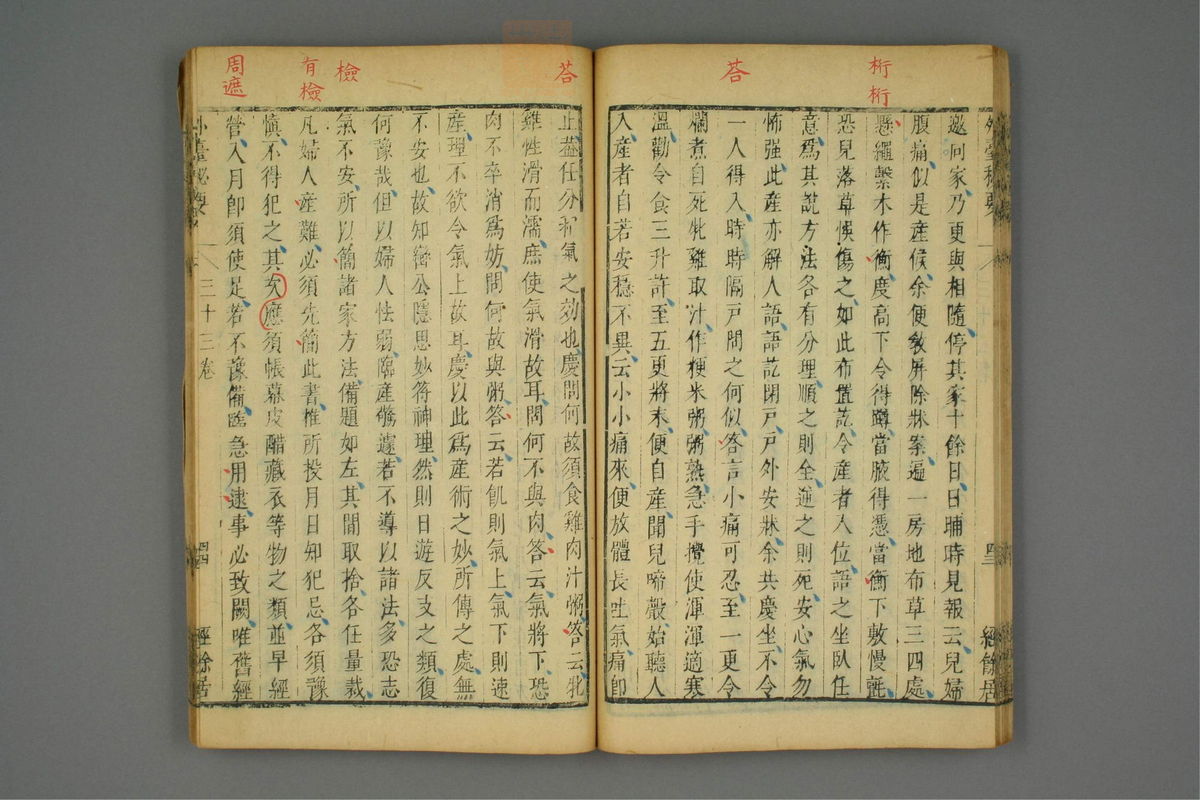 桁桁
荅
外臺秘要
四三
經餘居
邀向家乃更與相隨停其家十餘日日晡時見報云兒婦
腹痛似是產候余便敎屏除牀案遍一房地布草三四處
懸繩繫木作衡度高下令得蹲當腋得憑當衡下敷慢氈
恐兒落草悞傷之如此布置訖令產者入位語之坐臥任
意爲其說方法各有分理順之則全逆之則死安心氣勿
怖强此產亦解人語語訖閉戶戶外安牀余共慶坐不令
一人得入時時隔戶問之何似答言小痛可忍至一更令
爛煮自死牝雞取汁作粳米粥粥熟急手攪使渾渾適寒
溫勸令食三升許至五更將末便自產聞兒啼聲始聽人
入產者自若安穩不異云小小痛來便放體長吐氣痛卽
荅
檢
有檢
周遮
止蓋任分和氣之効也慶問何故須食雞肉汁粥答云牝
雞性滑而濡庶使氣滑故耳問何不與肉答云氣將下恐
肉不卒消爲妨問何故與粥答云若飢則氣上氣下則速
產理不欲令氣上故耳慶以此爲產術之妙所傳之處無
不安也故知巒公隱思妙符神理然則日遊反支之類復
何豫哉但以婦人怯弱臨產慞遽若不導以諸法多恐志
氣不安所以簡諸家方法備題如左其間取捨各任量裁
凡婦人產難必須先簡此書推所投月日知犯忌各須豫
愼不得犯之其次應須帳幕皮醋藏衣等物之類並早經
營入月卽須使足若不豫備臨急用逮事必致闕唯舊經
外臺秘要
三十三卷
四四
經餘居